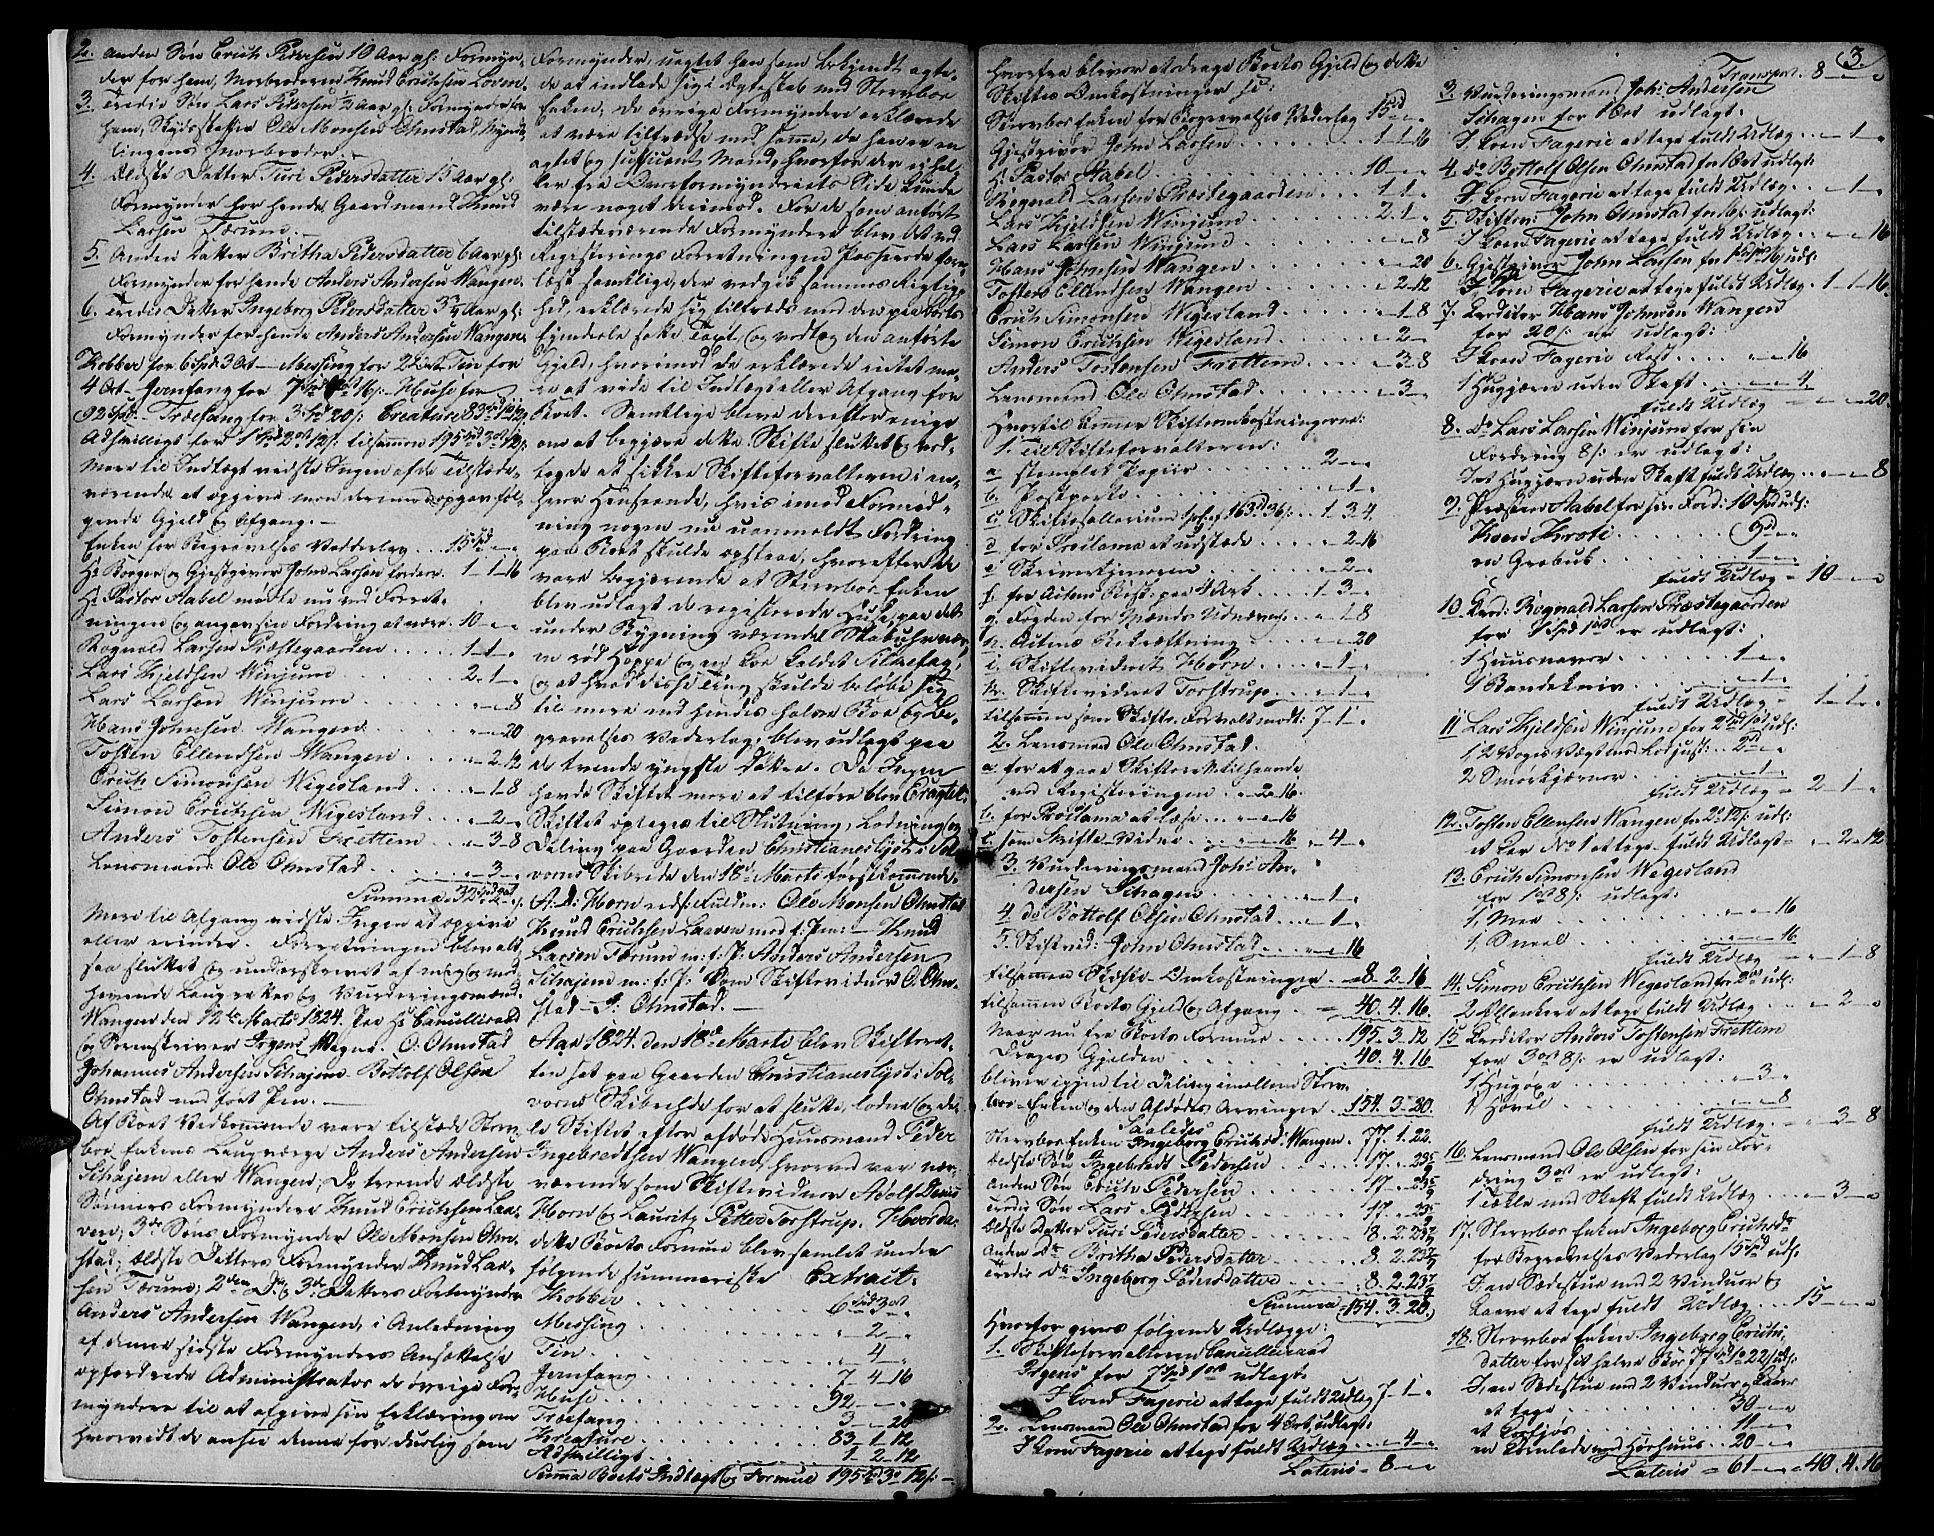 2. anden Søn Erich Pedersen 10 Aar gl: Formyn-
der for ham, Morbroderen Knud Erichsen
3. tredie Søn Lars Pedersen Aar gl: Formynder for
ham, Ole Monsen Ølmstad, Mynd-
lingens Morbroder.
4. Ældste Datter Turi Pedersdatter 15 Aar gl:
Formynder for hende Gaardmand Knud
Larsen Tærum.
5. Anden Datter Britha Pedersdatter 6 Aar gl:
Formynder for hende Anders Andersen Wangen.
6. tredie Datter Ingeborg Pedersdatter Aar gl:
Formynder for hende Anders Andersen Wangen.
Kobber for 6 Spd 3 Ort – Messing for 2 Ort Tin for
4 Ort – Jernfang for 7 Spd 4 ort 16 s: – Huse for
92 Spd: – Træfang for 3 Spd 20 s: Creature 83 Spd 1 ort 12 s:
Adskilligt for 1 Spd 2 ort 12 s: tilsammen 195 Spd 3 ort 12 s:
Mere til Indtægt vidste Ingen af de Tilstede-
værende at opgive men derimod opgav føl-
gende Gjeld og Afgang. –
Enken for Begravelses Vederlag ... 15 Spd „ – „
Hr Borger og Gjestgiver John Larsen fordrer. 1 – 1 – 16
Hr Pastor Aabel mødte nu ved Forret-
ningen og angav sin Fordring at være. 10 „ – „
Rognald Larsen Præstegaarden 1 – 1 – „
Lars Kjeldsen Winjum 2. 1 – „
Lars Larsen Winjum „ – „ 8
Hans Johnsen Wangen „ – „ 20
Tosten Ellendsen Wangen „ – 2 – 12
Erich Simonsen Wigesland „ – 1 – 8
Simon Erichsen Wigesland „ – 2 – „
Anders Tostensen Frettem „ – 3 – 8
Lensmand Ole Ølmstad „ – 3 – „
Summa 32 Spd 2 ort „ s.
Mere til Afgang vidste Ingen at opgive
eller erindre. Forretningen blev alt-
saa sluttet og underskrevet af mig og med-
havende Laugrettes og Vurderingsmænd.
Wangen den 12te Marts 1824. Paa Hr Cancelliraad
og Sorenskriver Irgens Vegne. O. Ølmstad
Johannes Andersen Schajem. Bottolf Olsen
Ølmstad med ført Pen. –
Af Boet Vedkommende vare tilstæde Sterv-
boe Enkens Laugværge Anders Andersen
Schajem eller Wangen, De tvende ældste
Sønners Formynder Knud Erichsen Laa-
ven; 3de Søns Formynder Ole Monsen Ølm-
stad; Ældste Datters Formynder Knud Lar-
sen Tærum; 2den Do & 3de Datters Formynder
Anders Andersen Wangen, i Anledning
af denne sidste Formynders Ansættelse
opfordrede Administrator de øvrige For-
myndere til at afgive sin Erklæring om
hvorvidt de ansee denne for duelig som
Formynder, uagtet han som bekjendt agte-
de at indlade sig i Ægteskab med Stervboe
Enken. De øvrige Formyndere erklærede
at være tilfredse med samme, da han er en
agtet og sufficient Mand, hvorfor der ei hel-
ler fra Overformynderiets Side kunde
være noget derimod. For de som anført
tilstædeværende Formyndere blev det ved
Registerings Forretningen Passerede fore-
læst samtlige, der vedgik sammes Rigtig-
hed, erklærede sig tilfreds med den paa Boets
Eiendele satte Taxt, og vedtog den anførte
Gjeld, hvorimod de erklærede intet me-
re at vide til Indtægt eller Afgang for
Boet. Samtlige bleve derefter enige
om at begjære dette Skifte sluttet og ved-
toge at sikkre Skifteforvalteren i en-
hver Henseende, hvis imod Formod-
ning nogen nu uanmeldt Fordring
paa Boet skulde opstaae, hvorefter de
vare begjærende at Stervboe Enken
blev udlagt de registerede Huse paa det
under Bygning værende
en rød Hoppe og een Koe kaldet Silkefag,
og at hvad disse Ting skulde beløbe sig
til mere end hendes halve Boe og Be-
gravelses Vederlag, blev udlagt paa
de tvende yngste Døttre. Da Ingen
havde Skiftet mere at tilføre blev Eragtet:
Skiftet optages til Slutning, Lodning og
Deling paa Gaarden Christianeslyst i Sol-
vorns Skibrede den 18de Marts førstkommende.
A: D: Horn vedf: Fuldm: Ole Monsen Ølmstad
Knud Erichsen Laaven med f. Pen: – Knud
Larsen Tærum m: f: P: Anders Andersen
Schajem m: f: P: Som Skiftevidner O. Ølm-
stad – J: Ølmstad. –
Aar 1824. den 18de Marts blev Skifteret-
ten sat paa Gaarden Christianeslyst i Sol-
vorns Skibrede for at slutte, lodne og de-
le Skiftet efter afdøde Huusmand Peder
Ingebredtsen Wangen, hvorved var nær-
værende som Skiftevidner Adolf Denis
Horn og Lauritz Petter Torstrup. Hvorda
dette Boets Formue blev samlet under
følgende summariske Extract.
Kobber 6 Spd 3 ort „
Messing „ 2 – „
Tin „ 4 – „
Jernfang 7 – 4 – 16
Huse 92 – „ – „
Træfang 3 – „ – 20
Kreature 83 – 1 – 12
Adskilligt 1 – 2 – 12
Summa Boets Indtægt og Formue 195 Spd 3 ort 12 s: –
3.
Hvorfra bliver at drage Boets Gjeld og dette
Skiftes Omkostninger so:
Stervboe Enken for Begravelses Vederlag 15 Spd
Gjestgiver John Larsen 1 – 1 – 16
Hr Pastor Aabel 10 – „ – „
Rognald Larsen Præstegaarden 1 – 1 – „
Lars Kjeldsen Winjum 2. 1 – „
Lars Larsen Winjum „ – „ – 8
Hans Johnsen Wangen „ – „ – 20
Tosten Ellendsen Wangen „ – 2 – 12
Erich Simonsen Wigesland „ – 1 – 8
Simon Erichsen Wigesland „ – 2 – „
Anders Tostensen Frettem „ – 3 – 8
Lensmand Ole Ølmstad „ – 3 – „
Hvortil kommer Skifteomkostningerne:
1. Til Skifteforvalteren:
a stemplet Papiir 2 – „ – „
b. Postporto „ – 1 – „
c. Skiftesallarium 1 pC: af 163 d 36 s: 1. 3. 4
d for Proclama at udstæde „ – 2 – 16
e Skriverpengene „ – 2 – „
f. for Actens Besk: paa 4 Ark 1. 3 – „
g. Fogden for Mænds Udnævn: „ – 1 – 8
h. Actens Bekræftning „ – „ – 20
i. Skiftevidnet Horn „ – 1 – „
k. Skiftevidnet Torstrup „ – 1 – „
tilsammen som Skifte-Forvalt. modt: 7 – 1 – „
2. Lensmand Ole Ølmstad.
a for at gaae Skifteretten tilhaande
ved Registeringen „ – 2 – 16.
b. for Proclama at læse „ – „ – 16
c. som Skifte Vidne „ – „ – 16 „ – 4 – „
3. Vurderingsmand Johs An-
dersen Schagen „ – 1 – „
4 do Bottolf Olsen Ølmstad „ – 1 – „
5. Skiftevid: John Ølmstad „ – „ – 16
tilsammen Skifte-Omkostninger 8. 2. 16
tilsammen Boets Gjeld og Afgang 40. 4. 16.
Naar nu fra Boets Formue 195. 3. 12
Drages Gjelden 40. 4. 16
bliver igjen til Deling imellem Sterv-
boe-Enken og den Afdødes Arvinger 154. 3. 20.
Saaledes
Stervboe Enken Ingeborg Erichsd: Wangen. 77. 1. 22.
Ældste Søn Ingebredt Pedersen 17. „ 23 5/9
Anden Søn Erich Pedersen 17 „ 23 5/9
tredie Søn Lars Pedersen 17. „ 23 5/9
Ældste Datter Turi Pedersdatter 8. 2. 23 7/9
Anden do Britha Pedersdatter 8. 2. 23 7/9
tredie do Ingeborg Pedersdatter 8. 2. 23 7/9
Summa 154. 3. 20.
Hvorfor gives følgende Udlægge:
1. Skifteforvalteren Cancelliraad
Irgens for 7 Spd 1 ort udlagt.
I Koen Fagerie at tage fuldt Udlæg 7 – 1 – „
2. Lensmand Ole Ølmstad for 4 Ort, udlagt:
I Koen Fagerie at tage fuldt Udlæg „ – 4 – „
Lateris – 8 – „ – „
Transport. 8 – „ – „
3. Vurderingsmand Johs: Andersen
Schagen for 1 Ort udlagt:
I Koen Fagerie at tage fuldt Udlæg „ – 1 – „
4. do Bottolf Olsen Ølmstad for 1 Ort udlagt
I Koen Fagerie at tage fuldt Udlæg „ – 1 – „
5. Skiftev: John Ølmstad for 16 s: udlagt:
I Koen Fagerie at tage fuldt Udlæg „ – „ – 16
6. Gjestgiver John Larsen for 1 Spd 1 ort 16 s: udl:
I Koen Fagerie at tage fuldt Udlæg. 1 – 1 – 16.
7. Creditor Hans Johnsen Wangen
for 20 s: er udlagt:
I Koen Fagerie Rest „ – „ 16
1 Hugjern uden Skaft „ – „ 4
fuldt Udlæg „ – „ – 20.
8. do Lars Larsen Winjum for sin
Fordring 8 s: er udlagt:
I et Hugjern uden Skaft fuldt Udlæg „ – „ – 8
9. Præsten Aabel for sin Ford: 10 Spd udl:
Koen Krosti 9 d „ – „
en Grobuk 1 – „ – „
fuldt Udlæg – 10 – „ – „
10. Cred: Rognald Larsen Præstegaarden
for 1 Spd 1 ort er udlagt:
1 Huusnaver 1 – „ – „
1 Bandekniv „ – 1 – „
fuldt Udlæg – 1 – 1 – „
11 Lars Kjeldsen Winjum for 2 Spd 1 ort udl:
12 Vogs Vægt med Lodjust: 2 d – „
2 Smørkjerner „ – 1 – „
fuldt Udlæg – 2 – 1 – „
12. Tosten Ellensen Wangen for 2 ort 12 s: udl:
et Kar No 1 at tage. fuldt Udlagt – „ – 2 – 12
13. Erich Simonsen Wigesland
for 1 ort 8 s: udlagt:
1 „ – „ 16
1 „ – „ – 16
fuldt Udlæg – „ – 1 – 8
14. Simon Erichsen Wigesland for 2 ort udl.
2 fuldt Udlæg „ – 2 – „
15 Creditor Anders Tostensen Frettem
for 3 ort 8 s: er udlagt:
1 Hugøxe „ – 3 – „
1 Høvel „ – „ 8
fuldt Udlæg „ – 3 – 8
16. Lensmand Ole Olsen for sin For-
dring 3 ort er udlagt:
1 med Skaft fuldt Udlæg „ – 3 – „
17. Stervboe Enken Ingeborg Erichsdr
for Begravelses Vederlag 15 Spd udl.
I en Sædestue med 2 Vinduer og
Laave at tage fuldt Udlæg 15 – „ – „
18. Stervboe Enken Ingeborg Erichs-
datter for sit halve Boe 77 Spd 1 ort 22 s udl:
I en Sædestue med 2 Vinduer og Laave
at tage 30 – „ – „
et 11 – „ – „
en med Hørhuus 20 – „ – „
Lateris – 61 – „ – „ 40. 4. 16